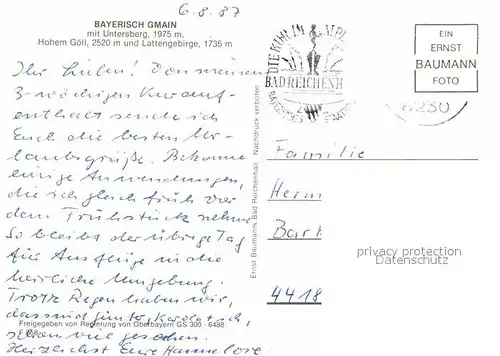 6.8.87
BAYERISCH GMAIN
mit Untersberg, 1975 m,
Hohem Göll, 2520 m und Lattengebirge, 1735 m
Ihr Lieben! Von meinem
3-wöchigen Kurauf-
enthalt sende ich
Euch die besten Ur-
laubsgrüße. Bekomme
einige Anwendungen,
die ich gleich früh vor
dem Frühstück nehme.
So bleibt der übrige Tag
für Ausflüge in die
herrliche Umgebung.
Trotz Regen haben wir,
das sind
schon viel gesehen.
Herzlichst Eure Hannelore
Freigegeben von Regierung von Oberbayern GS 300 6488
Ernst Baumann, Bad Reichenhall Nachdruck verboten
DIE KUR IM
BAD REICHENH
8230
EIN
ERNST
BAUMANN
FOTO
Familie
Herm
Bart
4418
privacy protection
Datenschutz